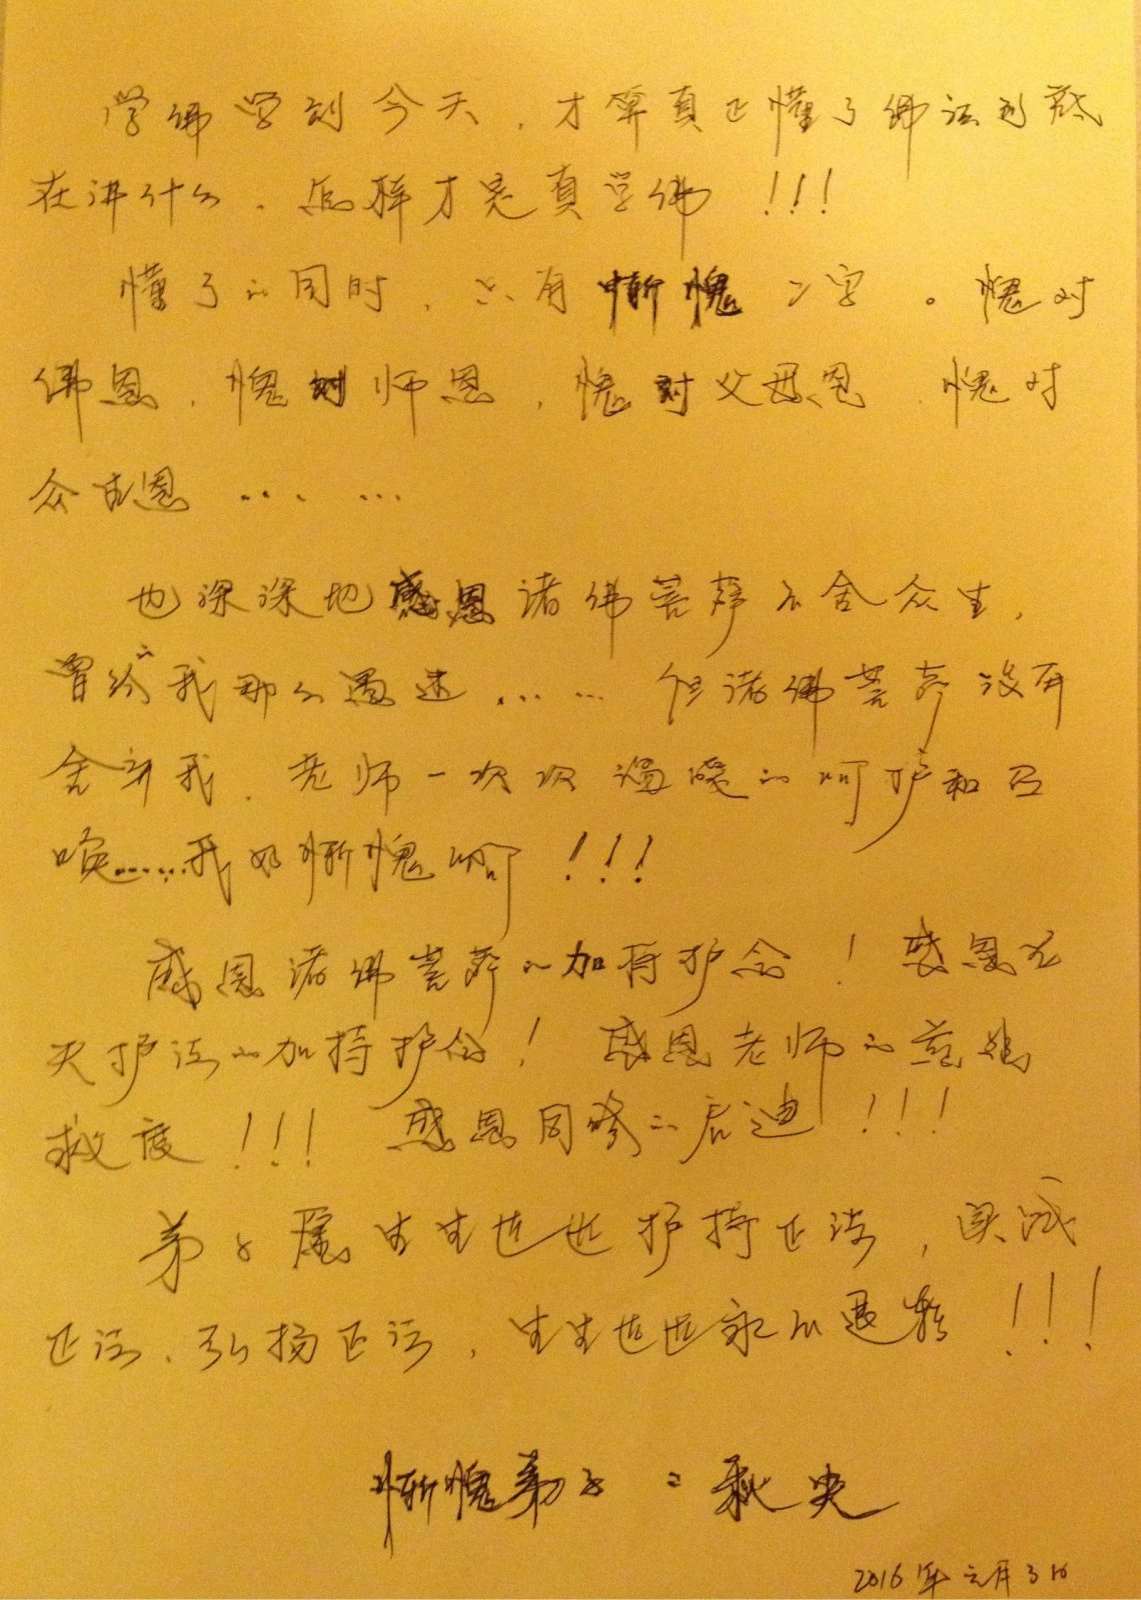 学佛学到今天，才算真正懂了佛法到底
在讲什么，怎样才是真学佛！！！
懂了的同时，只有惭愧二字。愧对
佛恩，愧对师恩，愧对父母恩，愧对
众生恩……
也深深地感恩诸佛菩萨不舍众生，
曾经的我那么愚迷……但诸佛菩萨没有
舍弃我，老师一次次温暖的呵护和召
唤……我好惭愧啊！！！
感恩诸佛菩萨的加持护念！感恩龙
天护法的加持护念！感恩老师的慈悲
救度！！！感恩同修的启迪！！！
弟子愿生生世世护持正法，实践
正法、弘扬正法，生生世世永不退转！！！
惭愧弟子：秋央
2016年元月3日